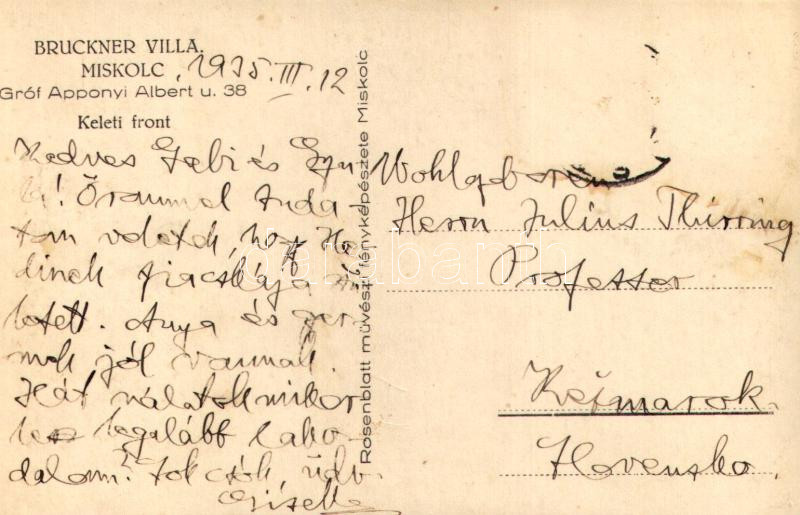 BRUCKNER VILLA.
MISKOLC, 1935. III. 12
Gróf Apponyi Albert u. 38
Keleti front
Kedves Gabi és
Örömmel tuda-
tom veletek, hogy He-
dinek fiacskája szü-
letett. Anya és gyer-
mek jól vannak.
Hát nálatok mikor
lesz legalább lako-
dalom? Sok csók, üdv.
Giselle
Rosenblatt művészi fényképészete Miskolc
Wohlgeborene
Herrn Julius Thirring
Professor
Kežmarok.
Slovensko.
darabanth